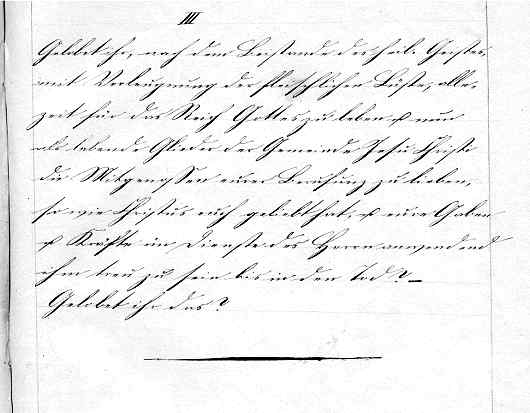 III
Gelobet ihr, nach dem Beistande des heil. Geistes,
mit Verleugnung der fleischlichen Lüste, alle-
zeit für das Reich Gottes zu leben & nun
als lebende Glieder der Gemeinde Jesu Christi
die Mitgenossen eurer Berufung zu lieben,
so wie Christus euch geliebt hat; & eure Gaben
& Kräfte im Dienste des Herrn anwendend
ihm treu zu sein bis in den Tod? –
Gelobet ihr das?